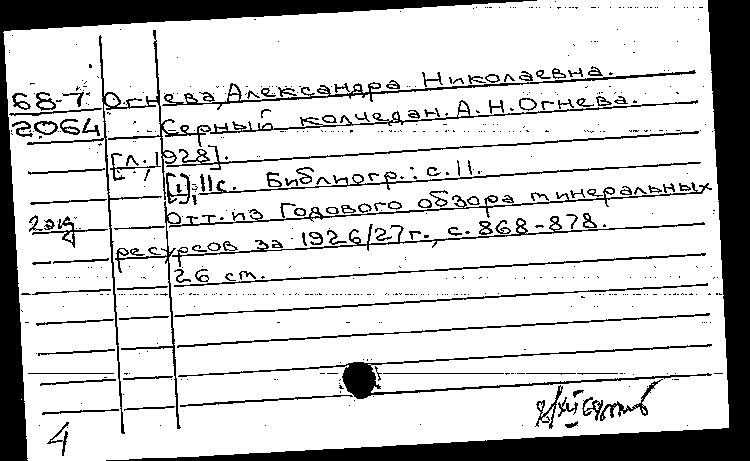 68-7 Огнева, Александра Николаевна.
2064 Серный колчедан. А.Н. Огнева.
[Л., 1928].
[1], 11с. Библиогр.: с. 11.
2 экз Отт. из Годового обзора минеральных
ресурсов за 1926/27г., с. 868-878.
26 см.
4